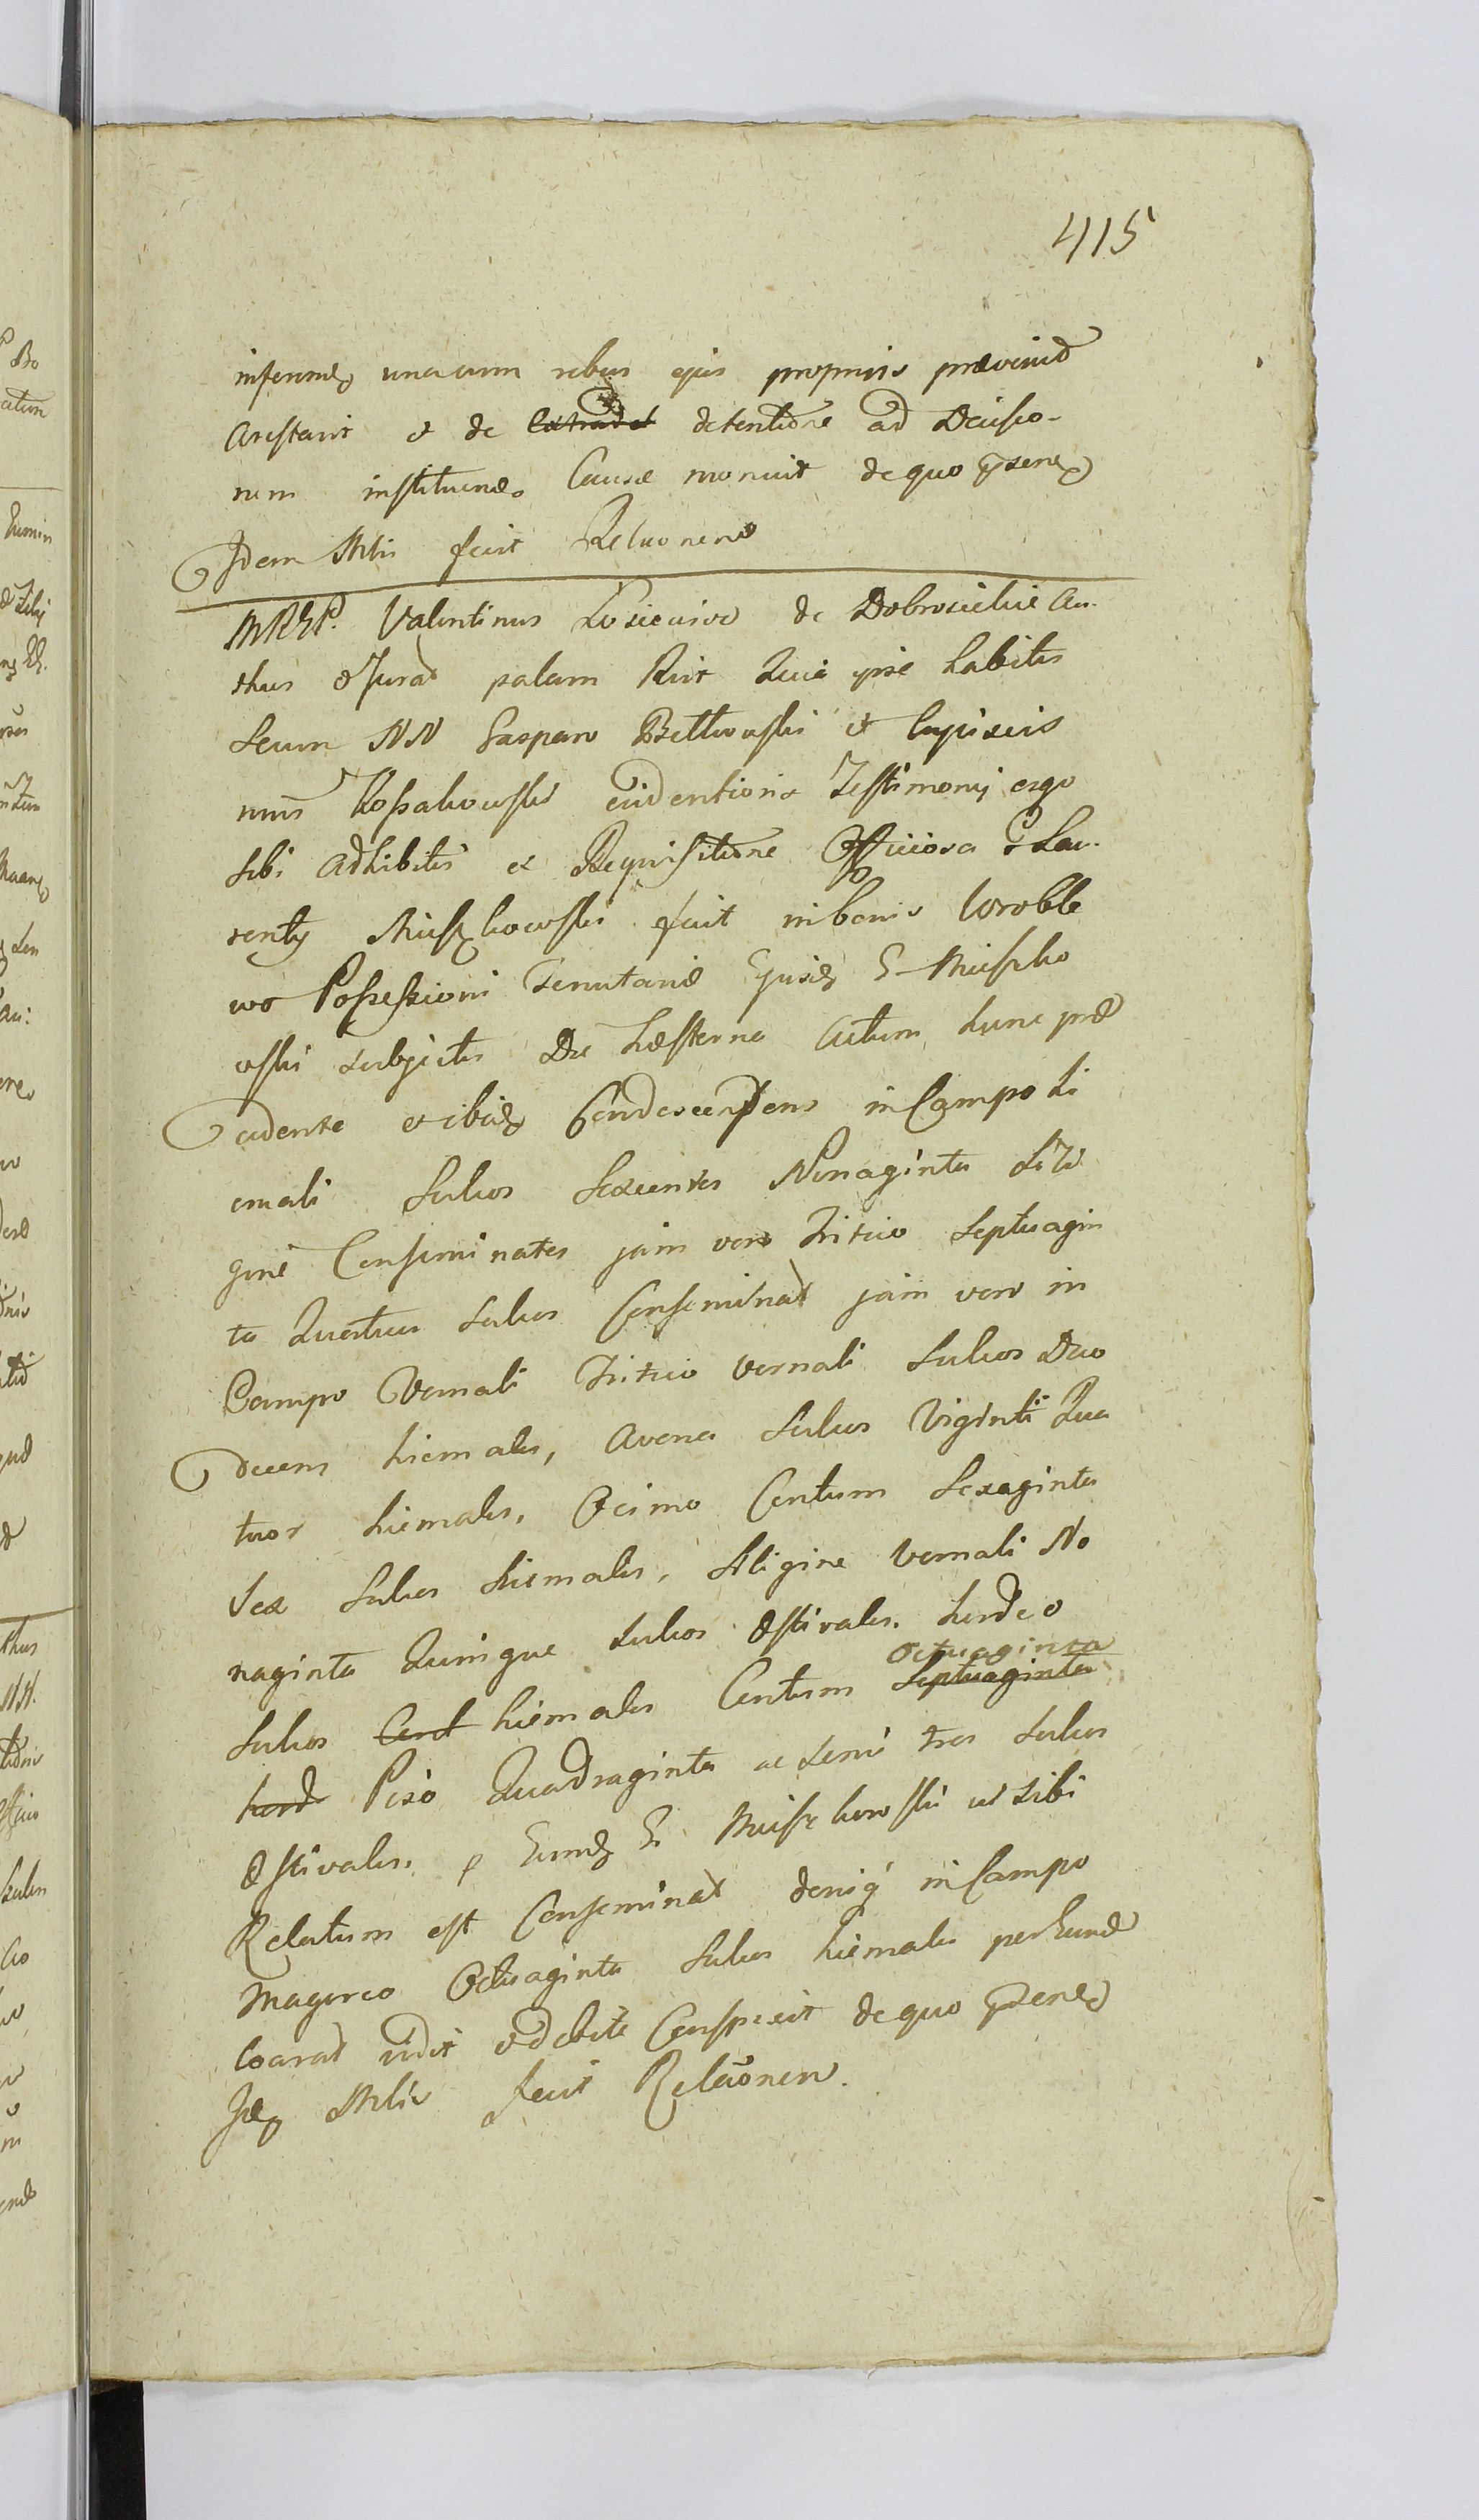 415
inferend unacum rebus ejus propriis prævenit
Arestavit et de Extradet detentione ad Decisio-
nem instituend Causæ monuit de quo præsens
Idem Mlis fecit Relaonem
MRGP. Valentinus de Au-
thus et Jurat palam Rxit Quia ipse habitis
secum NN Gaspar Bettkowski et
Kossakowski evidentioris Testimonij ergo
sibi adhibitis ex Requisitione Officiosa G Lau-
rentij Miiszkowski fuit in bonis Wroble
wo Possessioni Tenutariæ Ejusd G Miszko
wski subjectis Die hesterna Actum hunc præ
cedente et ibid Condescendens in Campo hi
emali Sulcos Sexcentos Nonaginta Sili
gine Conseminatos jam vero Tritico Septuagin
ta Quatuor Sulcos Conseminat jam vero in
Campo Vernali Tritico Vernali Sulcos Duo
decem hiemales, Avena Sulcos Viginti Qua
tuor hiemales, Ocimo Centum Sexaginta
Sex Sulcos hiemales, Siligine Vernali No
naginta Quinque Sulcos Æstivales. hordeo
Octuaginta
Sulcos Cent hiemales Centum Septuaginta
hord Piso Quadraginta ac semi tres Sulcos
Æstivales. p Eund G. Miszkowski ut sibi
Relatum est Conseminat deniq in Campo
Magereo Octuaginta Sulcos hiemales per Eund
Coarat vidit et debite Conspexit de quo præsens
Id Mlis fecit Relaonem.